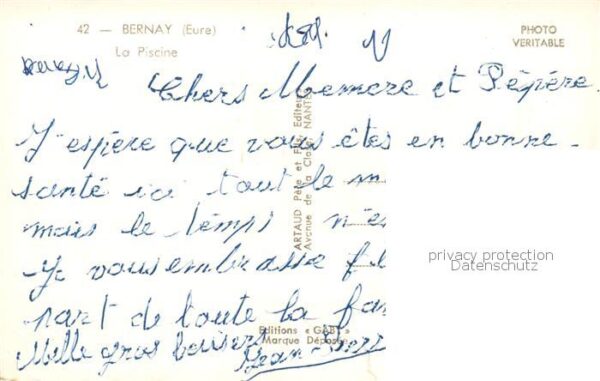 42 — BERNAY (Eure)
La Piscine
PHOTO
VERITABLE
Chers Memere et Pépère
J'espère que vous êtes en bonne
santé ici tout le m
mais le temps n'es
Je vous embrasse
part de toute la fam
Mille gros baisers
Jean-Pierr
ARTAUD Père et Fils, Editeurs
Avenue de la Close NANTES
Editions « GABY »
Marque Déposée
privacy protection
Datenschutz